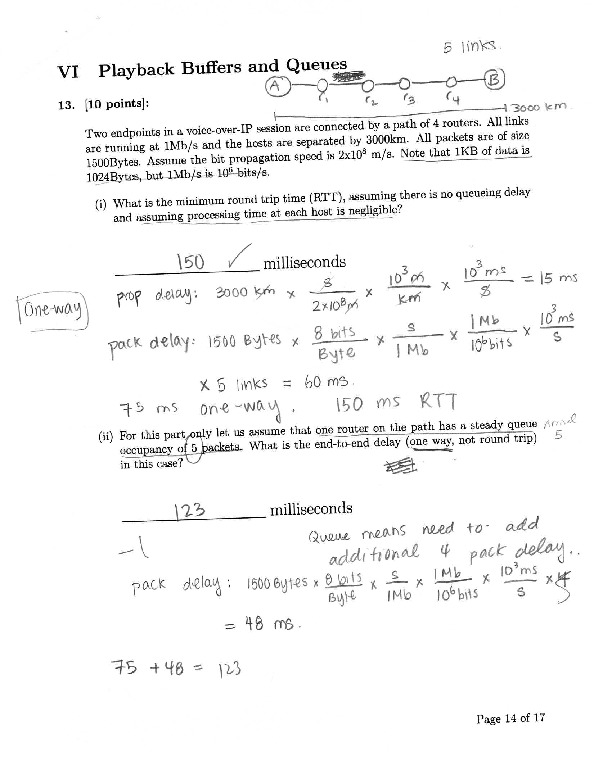 5 links.
VI Playback Buffers and Queues
A r1 r2 r3 r4 B
13. [10 points]:
3000 km
Two endpoints in a voice-over-IP session are connected by a path of 4 routers. All links
are running at 1Mb/s and the hosts are separated by 3000km. All packets are of size
1500Bytes. Assume the bit propagation speed is 2x10⁸ m/s. Note that 1KB of data is
1024Bytes, but 1Mb/s is 10⁶ bits/s.
(i) What is the minimum round trip time (RTT), assuming there is no queueing delay
and assuming processing time at each host is negligible?
150 ✓ milliseconds
One-way
prop delay: 3000 km × s/2×10⁸m × 10³ m/km × 10³ ms/s = 15 ms
pack delay: 1500 Bytes × 8 bits/Byte × s/1 Mb × 1 Mb/10⁶ bits × 10³ ms/s
× 5 links = 60 ms.
75 ms one-way. 150 ms RTT
(ii) For this part only let us assume that one router on the path has a steady queue
occupancy of 5 packets. What is the end-to-end delay (one way, not round trip) 5
in this case?
123 milliseconds
-1
Queue means need to add
additional 4 pack delay..
pack delay: 1500 Bytes × 8 bits/Byte × s/1Mb × 1 Mb/10⁶ bits × 10³ ms/s ×
= 48 ms.
75 + 48 = 123
Page 14 of 17